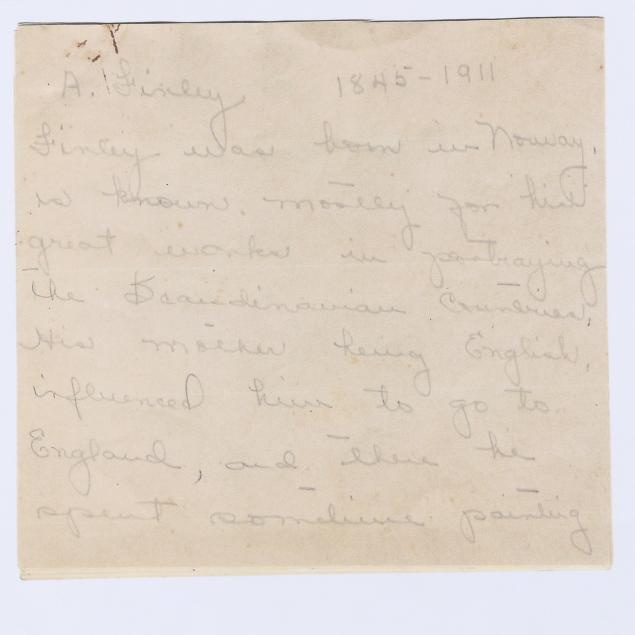 A. Finley 1845-1911
Finley was born in Norway.
is known. mostly for his
great works in portraying
the Scandinavian Countries.
His mother being English,
influenced him to go to
England, and there he
spent sometime painting